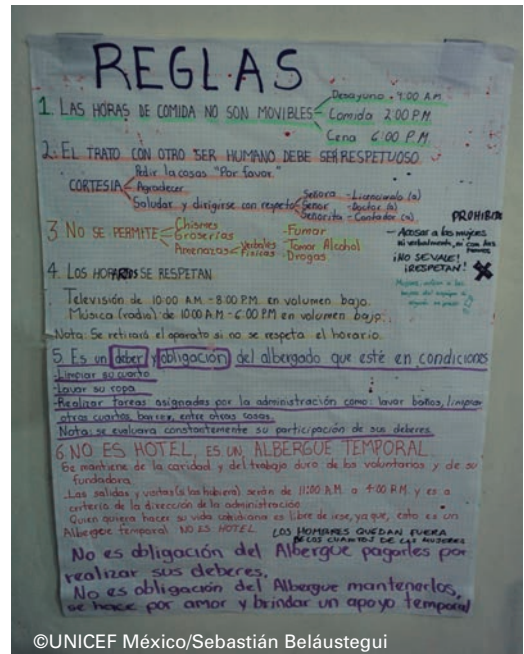 REGLAS
1. LAS HORAS DE COMIDA NO SON MOVIBLES
Desayuno - 9:00 A.M.
Comida 2:00 P.M
Cena 6:00 P.M
2. EL TRATO CON OTRO SER HUMANO DEBE SER RESPETUOSO
CORTESIA
Pedir la cosas "Por favor."
Agradecer
Saludar y dirigirse con respeto
Señora - Licenciado (a)
Señor - Doctor (a)
Señorita - Contador (a)
3 NO SE PERMITE
Chismes
Groserias
Amenazas
Verbales
Fisicas
- Fumar
- Tomar Alcohol
- Drogas
PROHIBIDO
- Acosar a las mujeres
ni verbalmente, ni con las
¡NO SE VALE!
¡RESPETAN!
4. LOS HORARIOS SE RESPETAN
Televisión de 10:00 A.M - 8:00 P.M. en volumen bajo.
Música (radio) de 10:00 A.M - 6:00 P.M en volumen bajo.
Nota: Se retirará el aparato si no se respeta el horario.
5. Es un deber y obligación del albergado que esté en condiciones
- Limpiar su cuarto
- Lavar su ropa
- Realizar tareas asignadas por la administración como: lavar baños, limpiar
otros cuartos, barrer, entre otras cosas.
Nota: se evaluara constantemente su participación de sus deberes.
6. NO ES HOTEL, ES UN, ALBERGUE TEMPORAL.
Se mantiene de la caridad y del trabajo duro de los voluntarios y de su
fundadora.
Las salidas y visitas (si las hubiera) serán de 11:00 A.M. a 4:00 P.M. y es a
criterio de la dirección de la administración.
Quien quiera hacer su vida cotidiana es libre de irse, ya que, esto es un
Albergue temporal NO ES HOTEL LOS HOMBRES QUEDAN FUERA
DE LOS CUARTOS DE LAS MUJERES
No es obligación del Albergue pagarles por
realizar sus deberes.
No es obligación del Albergue mantenerlos,
se hace por amor y brindar un apoyo temporal
©UNICEF México/Sebastián Beláustegui